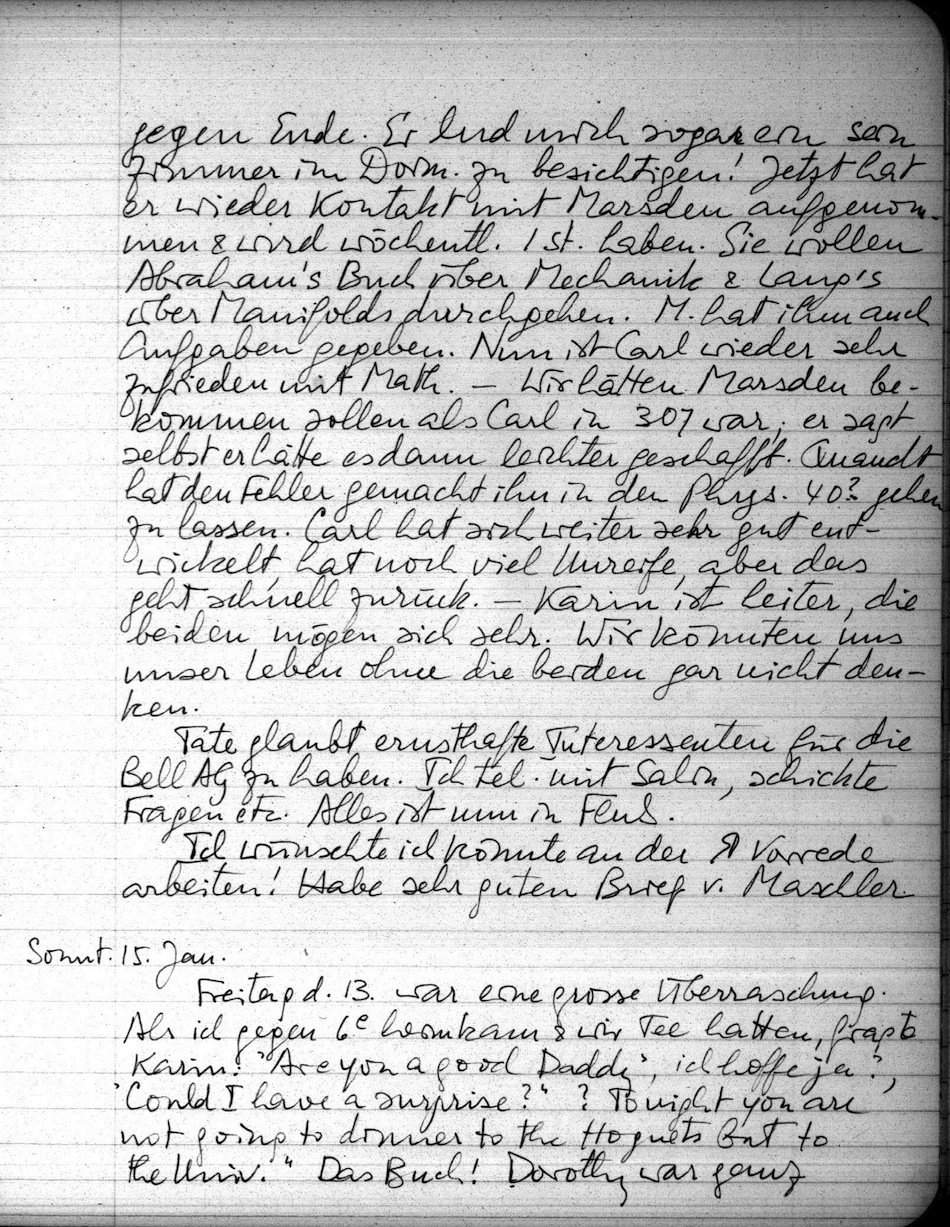 gegen Ende. Er lud mich sogar ein sein
Zimmer im Dorm. zu besichtigen! Jetzt hat
er wieder Kontakt mit Marsden aufgenom-
men & wird wöchentl. 1 st. haben. Sie wollen
Abraham's Buch über Mechanik & Lang's
über Manifolds durchgehen. M. hat ihm auch
Aufgaben gegeben. Nun ist Carl wieder sehr
zufrieden mit Math. – Wir hätten Marsden be-
kommen sollen als Carl in 307 war, er sagt
selbst er hätte es dann leichter geschafft. Quandt
hat den Fehler gemacht ihn in den Phys. 40? gehen
zu lassen. Carl hat sich weiter sehr gut ent-
wickelt, hat noch viel Unreife, aber das
geht schnell zurück. – Karin ist heiter, die
beiden mögen sich sehr. Wir könnten uns
unser Leben ohne die beiden gar nicht den-
ken.
Tate glaubt ernsthafte Interessenten für die
Bell AG zu haben. Ich tel. mit Salin, schickte
Fragen etc. Alles ist nun in Fluß.
Ich wünschte ich könnte an der Vorrede
arbeiten! Habe sehr guten Brief v. Maschler.
Sonnt. 15. Jan.
Freitag d. 13. war eine grosse Überraschung.
Als ich gegen 6e heimkam & wir Tee hatten, fragte
Karin: "Are you a good Daddy", ich hoffe ja?,
"Could I have a surprise?" ? Tonight you are
not going to dinner to the Hoguets but to
the Univ." Das Buch! Dorothy war ganz